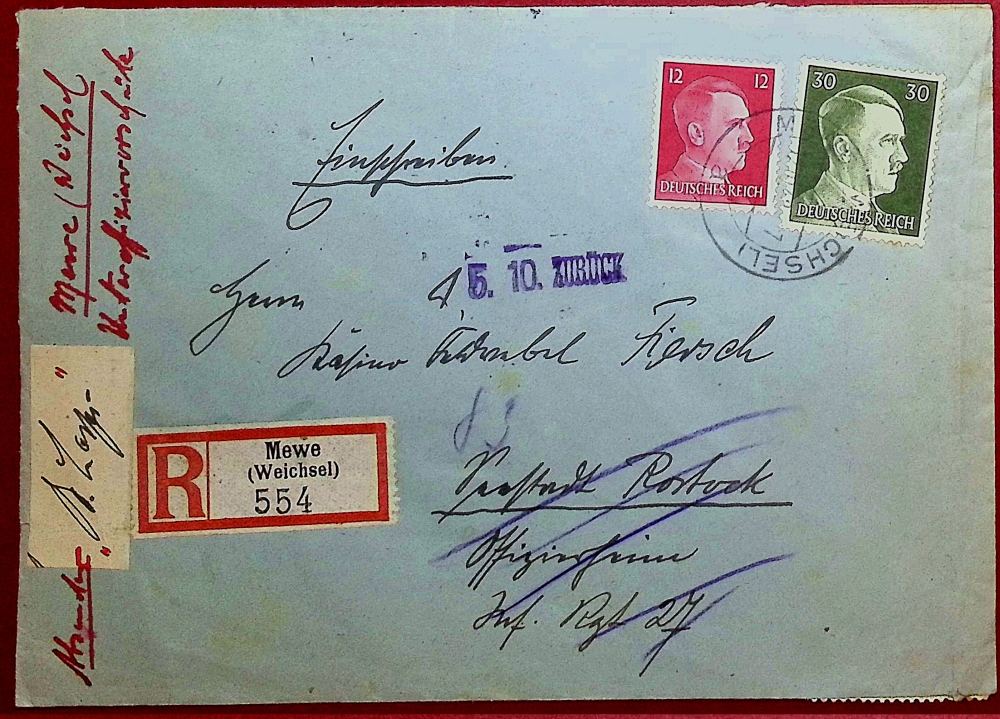 12 12
DEUTSCHES REICH
30 30
DEUTSCHES REICH
CHSEL)
Einschreiben
5. 10. ZURÜCK
Herrn
Kasino Feldwebel Fiersch
Seestadt Rostock
Offiziersheim
Inf. Rgt 27
R
Mewe
(Weichsel)
554
Mewe (Weichsel
Unteroffiziervorschule
Absender